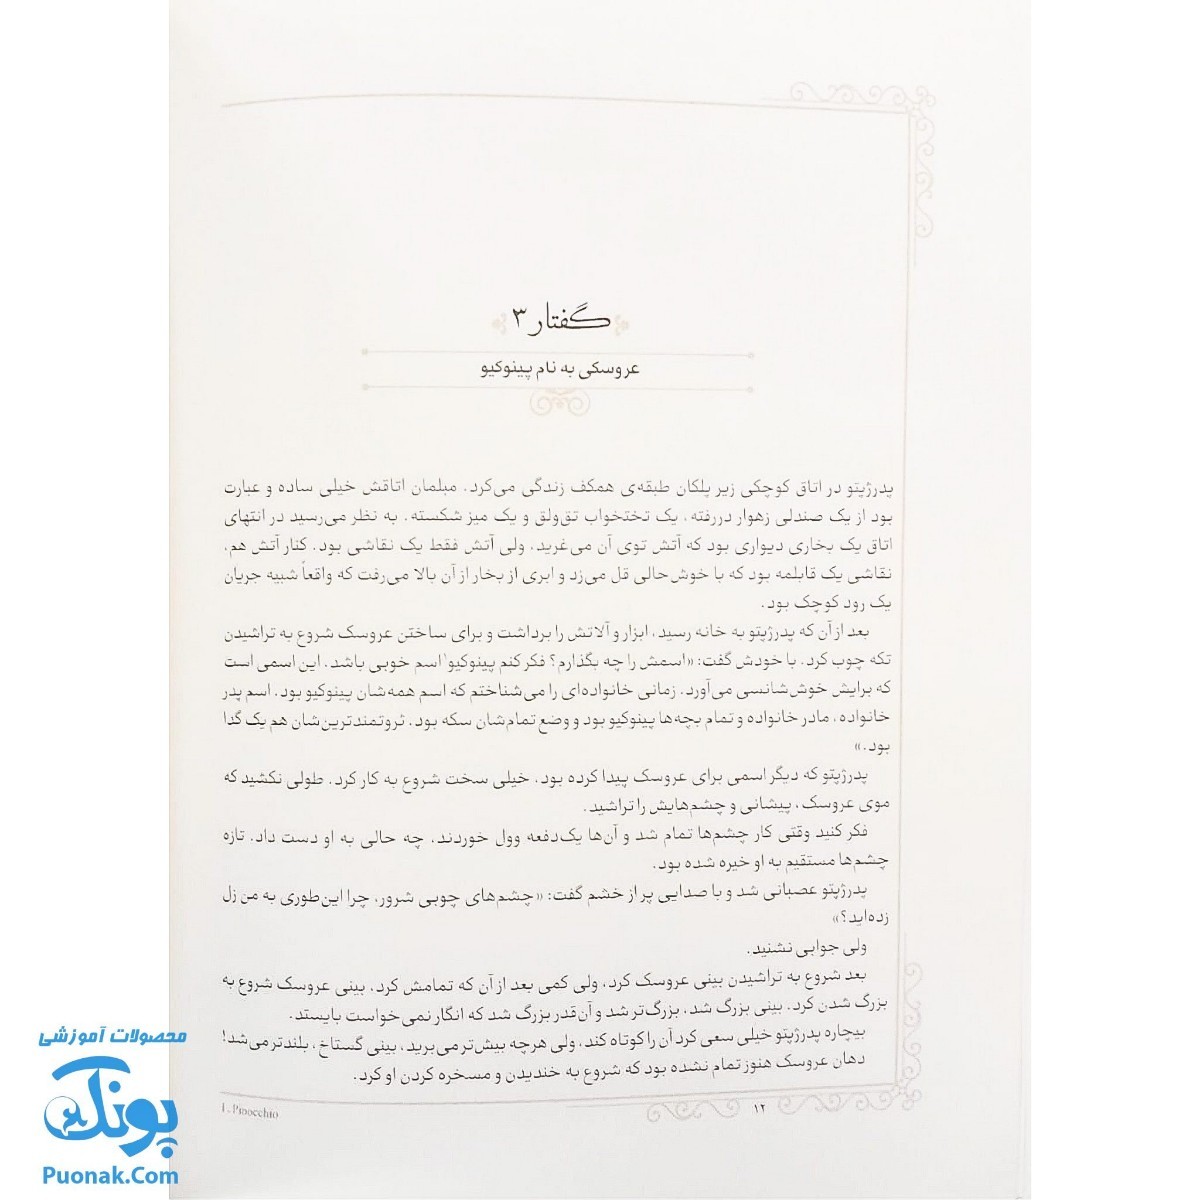 گفتار ۳
عروسکی به نام پینوکیو
پدرژپتو در اتاق کوچکی زیر پلکان طبقه‌ی همکف زندگی می‌کرد. مبلمان اتاقش خیلی ساده و عبارت
بود از یک صندلی زهوار دررفته، یک تختخواب تق‌ولق و یک میز شکسته. به نظر می‌رسید در انتهای
اتاق یک بخاری دیواری بود که آتش توی آن می‌غرید، ولی آتش فقط یک نقاشی بود. کنار آتش هم،
نقاشی یک قابلمه بود که با خوش‌حالی قل می‌زد و ابری از بخار از آن بالا می‌رفت که واقعاً شبیه جریان
یک رود کوچک بود.
بعد از آن که پدرژپتو به خانه رسید، ابزار و آلاتش را برداشت و برای ساختن عروسک شروع به تراشیدن
تکه چوب کرد. با خودش گفت: «اسمش را چه بگذارم؟ فکر کنم پینوکیو۱ اسم خوبی باشد. این اسمی است
که برایش خوش‌شانسی می‌آورد. زمانی خانواده‌ای را می‌شناختم که اسم همه‌شان پینوکیو بود. اسم پدر
خانواده، مادر خانواده و تمام بچه‌ها پینوکیو بود و وضع تمام‌شان سکه بود. ثروتمندترین‌شان هم یک گدا
بود.»
پدرژپتو که دیگر اسمی برای عروسک پیدا کرده بود، خیلی سخت شروع به کار کرد. طولی نکشید که
موی عروسک، پیشانی و چشم‌هایش را تراشید.
فکر کنید وقتی کار چشم‌ها تمام شد و آن‌ها یک‌دفعه وول خوردند، چه حالی به او دست داد. تازه
چشم‌ها مستقیم به او خیره شده بود.
پدرژپتو عصبانی شد و با صدایی پر از خشم گفت: «چشم‌های چوبی شرور، چرا این‌طوری به من زل
زده‌اید؟»
ولی جوابی نشنید.
بعد شروع به تراشیدن بینی عروسک کرد، ولی کمی بعد از آن که تمامش کرد، بینی عروسک شروع به
بزرگ شدن کرد. بینی بزرگ شد، بزرگ‌تر شد و آن‌قدر بزرگ شد که انگار نمی‌خواست بایستد.
بیچاره پدرژپتو خیلی سعی کرد آن را کوتاه کند، ولی هرچه بیش‌تر می‌برید، بینی گستاخ، بلندتر می‌شد!
دهان عروسک هنوز تمام نشده بود که شروع به خندیدن و مسخره کردن او کرد.
1. Pinocchio
۱۲
محصولات آموزشی
پونک
Puonak.Com